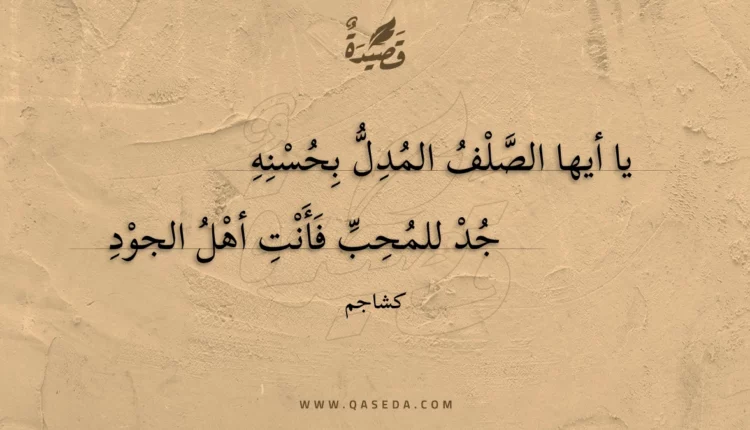 قَصِيْدَةٌ
يا أيها الصَّلْفُ المُدِلُّ بِحُسْنِهِ
جُدْ للمُحِبِّ فَأَنْتِ أهْلُ الجوْدِ
كشاجم
WWW.QASEDA.COM